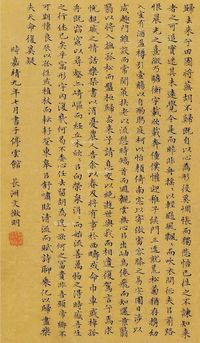 歸去來兮田園將蕪胡不歸既自以心為形役奚惆悵而獨悲悟已往之不諫知來
者之可追實迷途其未遠覺今是而昨非舟搖搖以輕颺風飄飄而吹衣問征夫以前路
恨晨光之熹微乃瞻衡宇載欣載奔僮僕歡迎稚子候門三逕就荒松菊猶存攜幼
入室有酒盈樽引壺觴以自酌眄庭柯以怡顏倚南窗以寄傲審容膝之易安園日涉以
成趣門雖設而常關策扶老以流憩時矯首而遐觀雲無心以出岫鳥倦飛而知還景翳翳
以將入撫孤松而盤桓歸去來兮請息交以絕遊世與我而相違復駕言兮焉求
悅親戚之情話樂琴書以消憂農人告余以春及將有事於西疇或命巾車或棹孤
舟既窈窕以尋壑亦崎嶇而經丘木欣欣以向榮泉涓涓而始流善萬物之得時感吾生
之行休已矣乎寓形宇內復幾時曷不委心任去留胡為遑遑欲何之富貴非吾願帝鄉不
可期懷良辰以孤往或植杖而耘耔登東皋以舒嘯臨清流而賦詩聊乘化以歸盡樂
夫天命復奚疑
時嘉靖元年七月書于停雲館 長洲文徵明